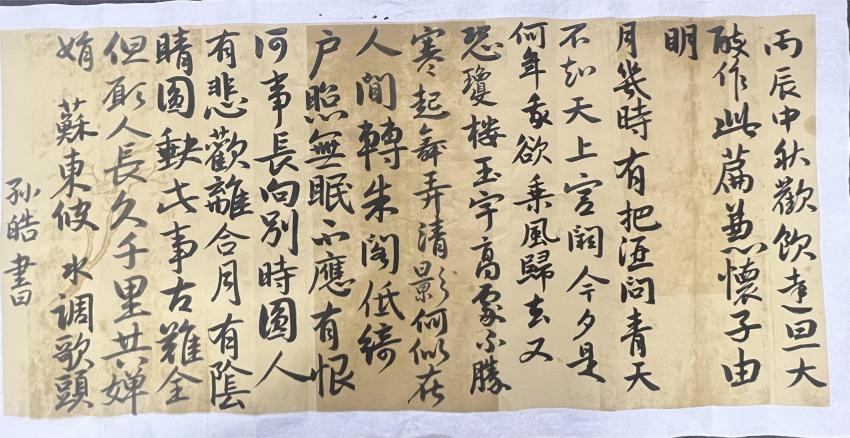 丙辰中秋歡飲達旦大
醉作此篇兼懷子由
明
月幾時有把酒問青天
不知天上宮闕今夕是
何年我欲乘風歸去又
恐瓊楼玉宇高處不勝
寒起舞弄清影何似在
人間轉朱閣低綺
户照無眠不應有恨
何事長向別時圓人
有悲歡離合月有陰
晴圓缺此事古難全
但願人長久千里共嬋
娟 蘇東坡 水調歌頭
孙皓書